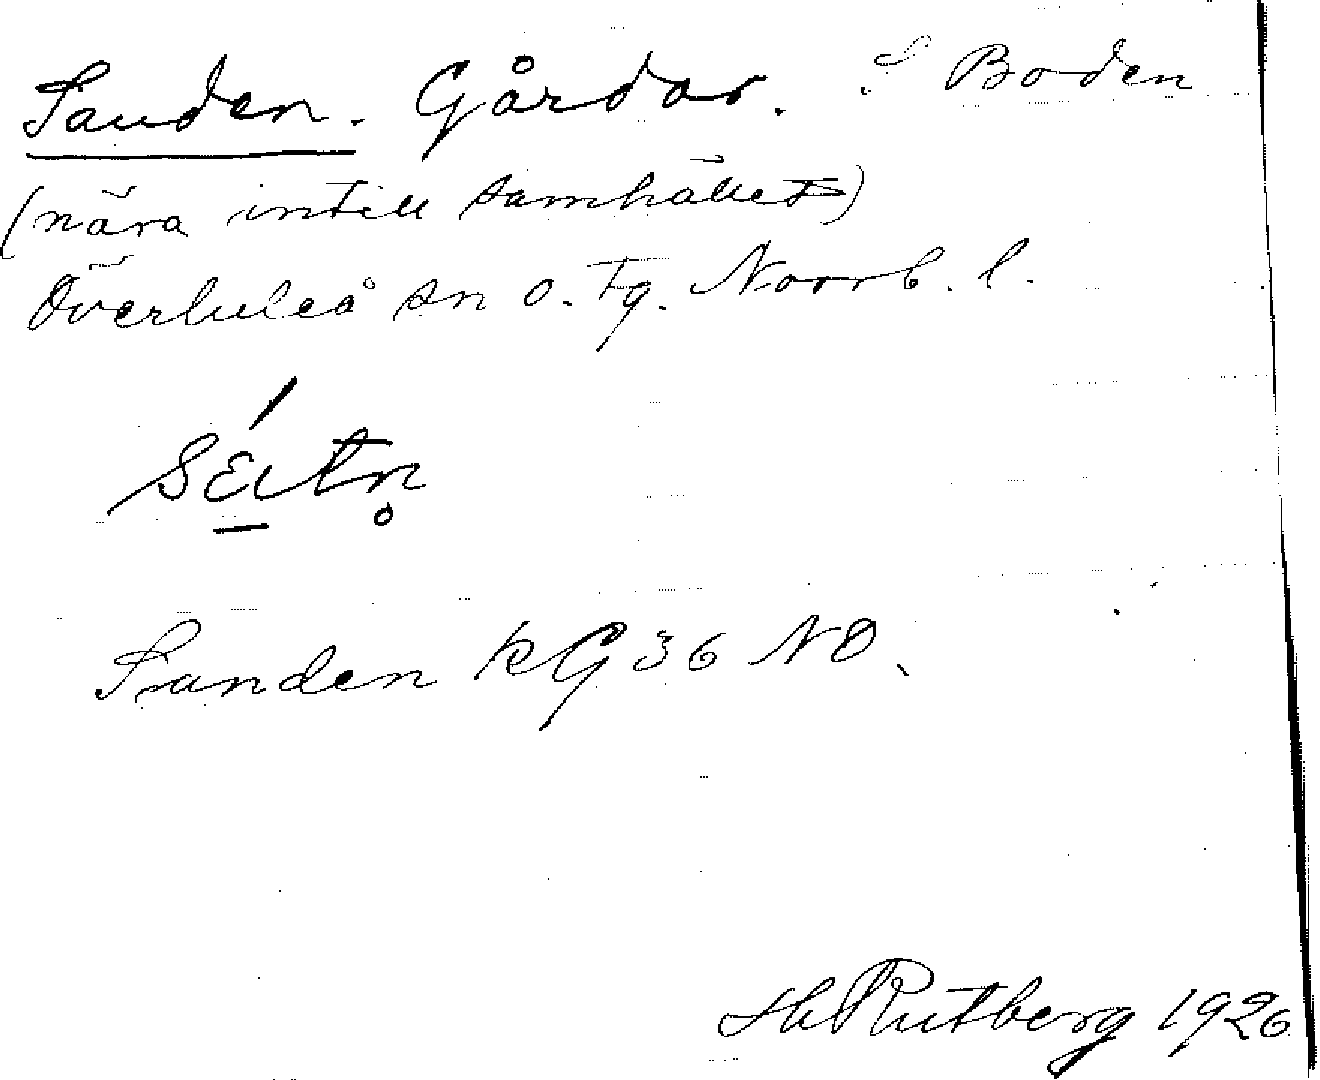 Sanden. Gårdar. S Boden
(nära intill samhället)
Överluleå sn o. tg. Norrb. l.
Sanden kG 36 NO.
H Rutberg 1926